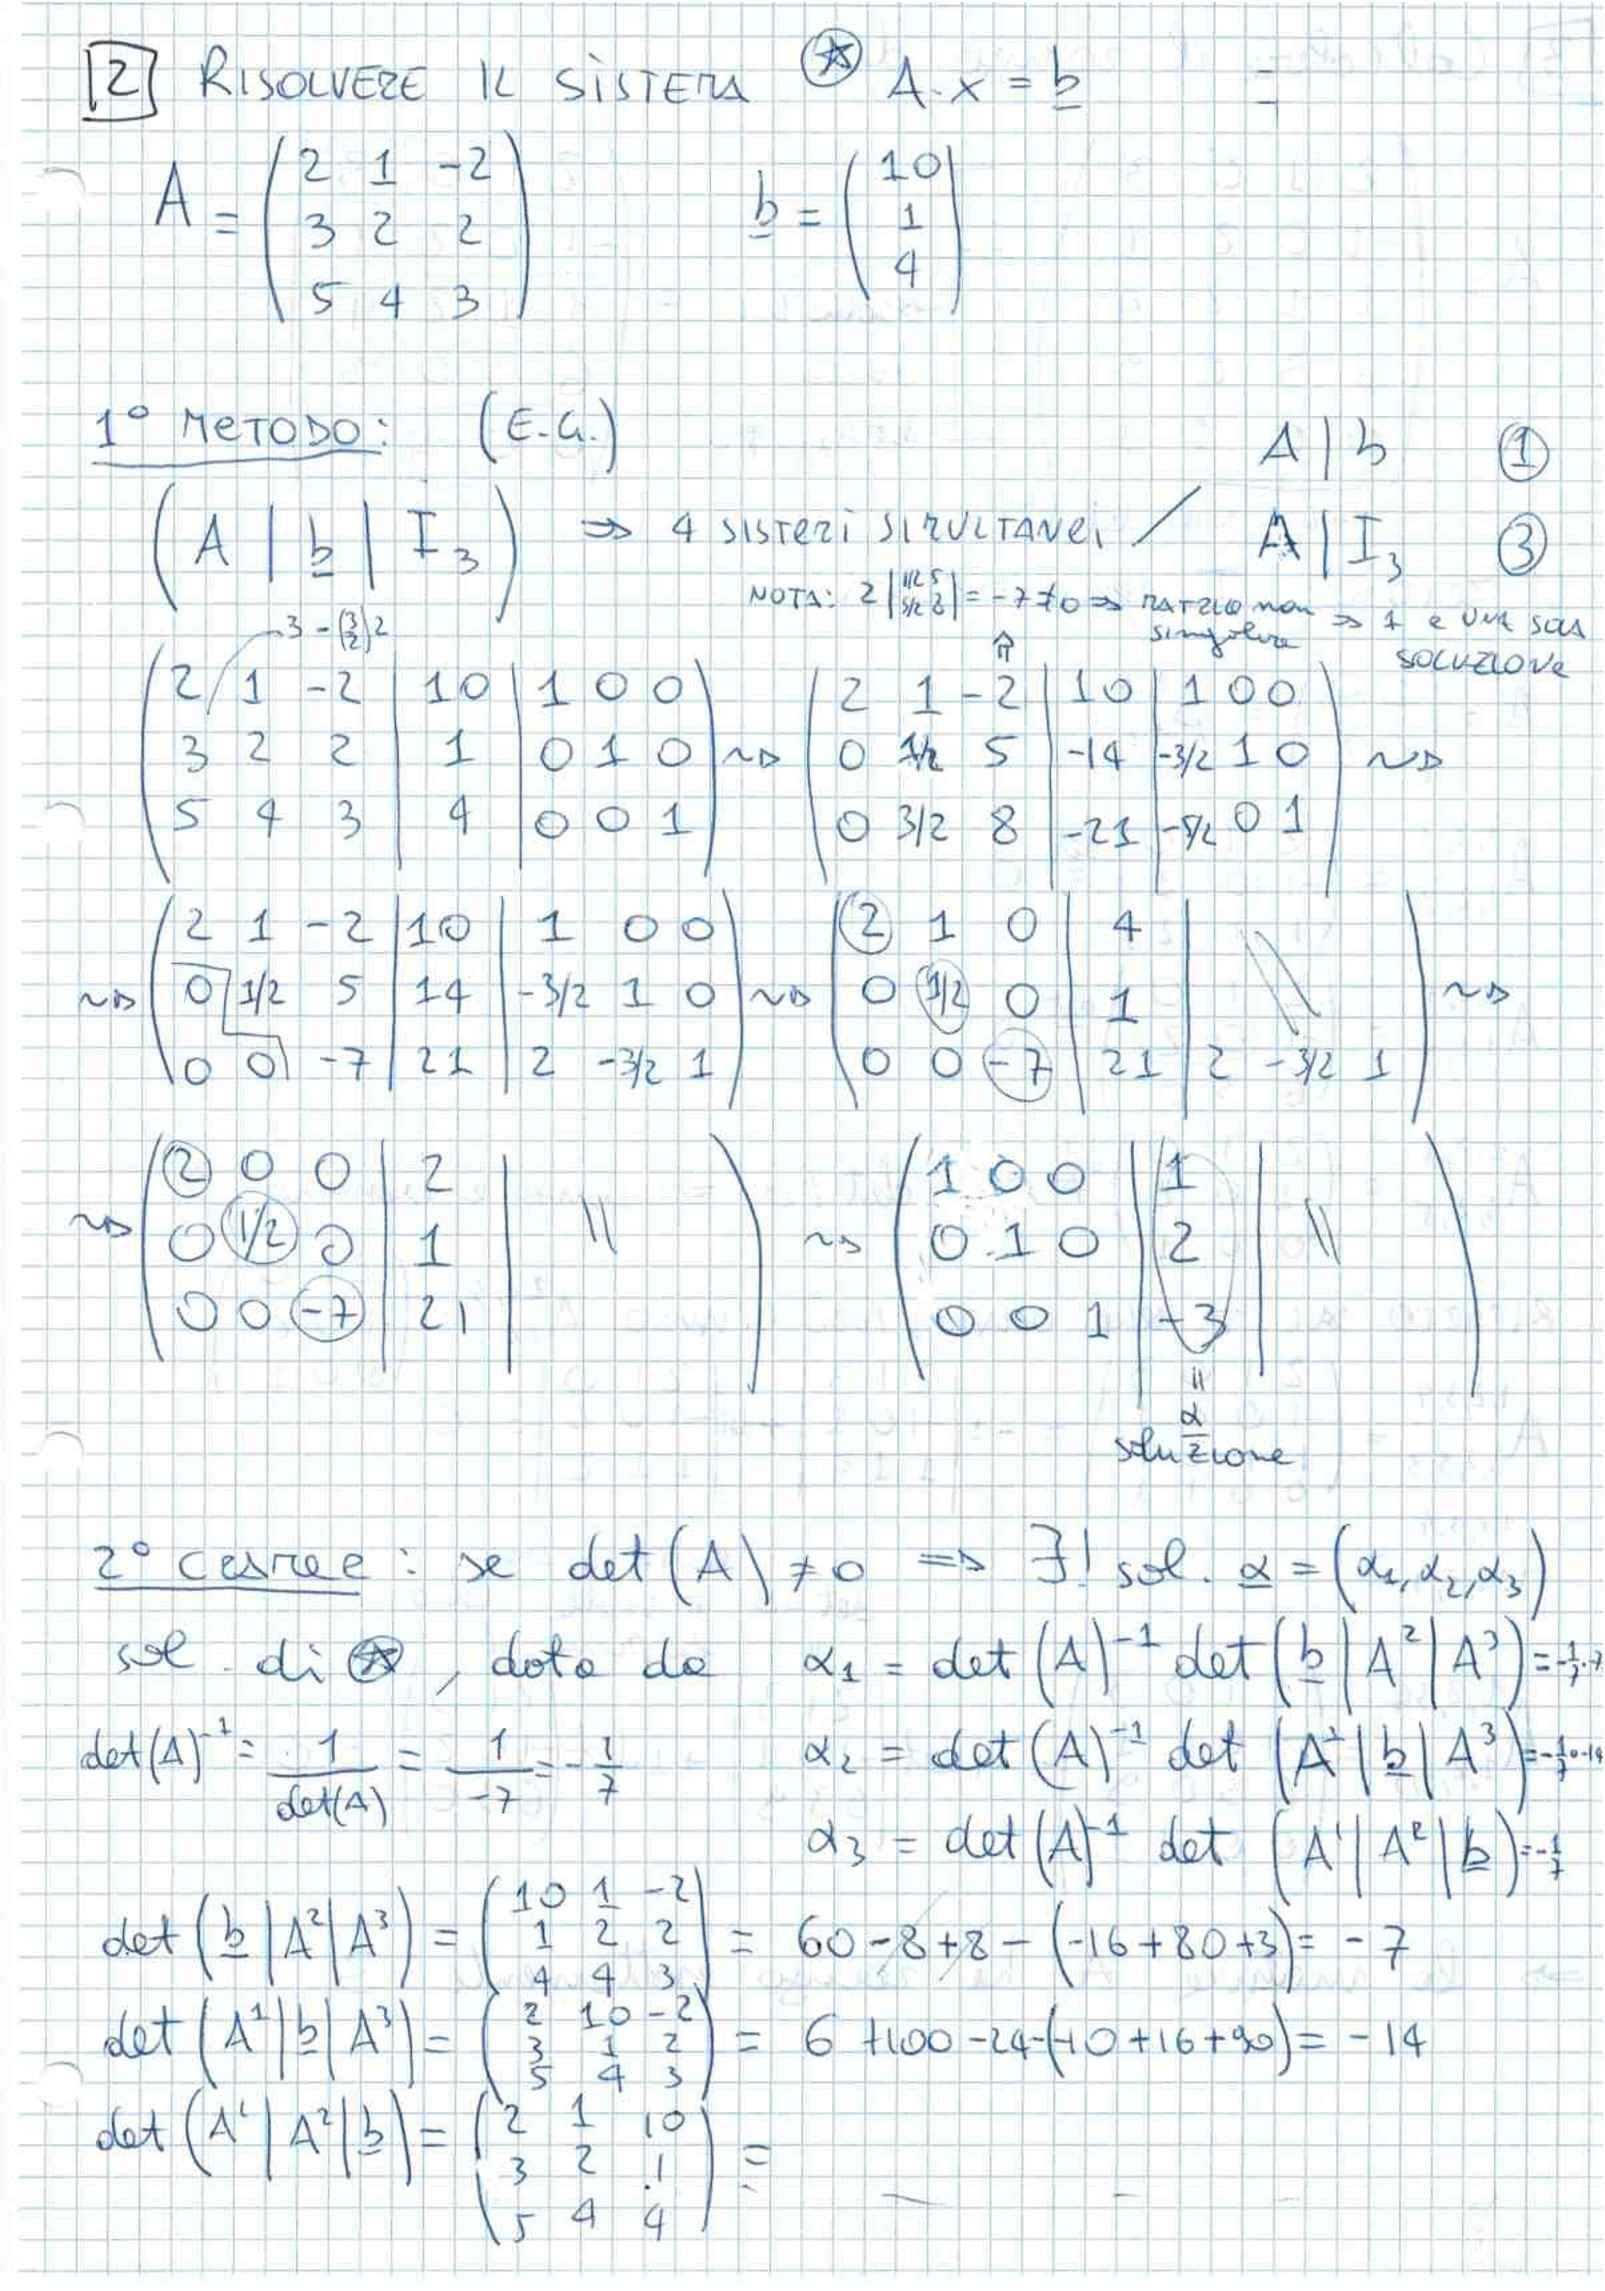 [2] RISOLVERE IL SISTEMA ⊛ A·x = b =
A = ( 2 1 -2 ; 3 2 2 ; 5 4 3 ) b = ( 10 ; 1 ; 4 )
1° METODO: (E.G.) A | b ①
( A | b | I₃ ) ⇒ 4 SISTEMI SIMULTANEI / A | I₃ ③
NOTA: 2 | 1/2 5 ; 3/2 8 | = -7 ≠ 0 ⇒ MATRICE non singolare ⇒ 1 e UNA SOLA SOLUZIONE
3 - (3/2) 2 ⇑
( 2 1 -2 | 10 | 1 0 0 ) ( 2 1 -2 | 10 | 1 0 0 )
( 3 2 2 | 1 | 0 1 0 ) ~> ( 0 1/2 5 | -14 | -3/2 1 0 ) ~>
( 5 4 3 | 4 | 0 0 1 ) ( 0 3/2 8 | -21 | -5/2 0 1 )
( 2 1 -2 | 10 | 1 0 0 ) ( 2 1 0 | 4 | )
~> ( 0 1/2 5 | 14 | -3/2 1 0 ) ~> ( 0 1/2 0 | 1 | \\ ) ~>
( 0 0 -7 | 21 | 2 -3/2 1 ) ( 0 0 -7 | 21 | 2 -3/2 1 )
( 2 0 0 | 2 | ) ( 1 0 0 | 1 | )
~> ( 0 1/2 0 | 1 | \\ ) ~> ( 0 1 0 | 2 | \\ )
( 0 0 -7 | 21 | ) ( 0 0 1 | -3 | )
=
α
soluzione
2° : se det(A) ≠ 0 => ∃! sol. α = (α₁, α₂, α₃)
sol. di ⊛, data da α₁ = det(A)⁻¹ det( b | A² | A³ ) = -1/7·-7
det(A)⁻¹ = 1/det(A) = 1/-7 = -1/7 α₂ = det(A)⁻¹ det( A¹ | b | A³ ) = -1/7·-14
α₃ = det(A)⁻¹ det( A¹ | A² | b ) = -1/7
det( b | A² | A³ ) = ( 10 1 -2 ; 1 2 2 ; 4 4 3 ) = 60 - 8 + 8 - (-16 + 80 + 3) = -7
det( A¹ | b | A³ ) = ( 2 10 -2 ; 3 1 2 ; 5 4 3 ) = 6 + 100 - 24 - (-10 + 16 + 90) = -14
det( A¹ | A² | b ) = ( 2 1 10 ; 3 2 1 ; 5 4 4 ) =